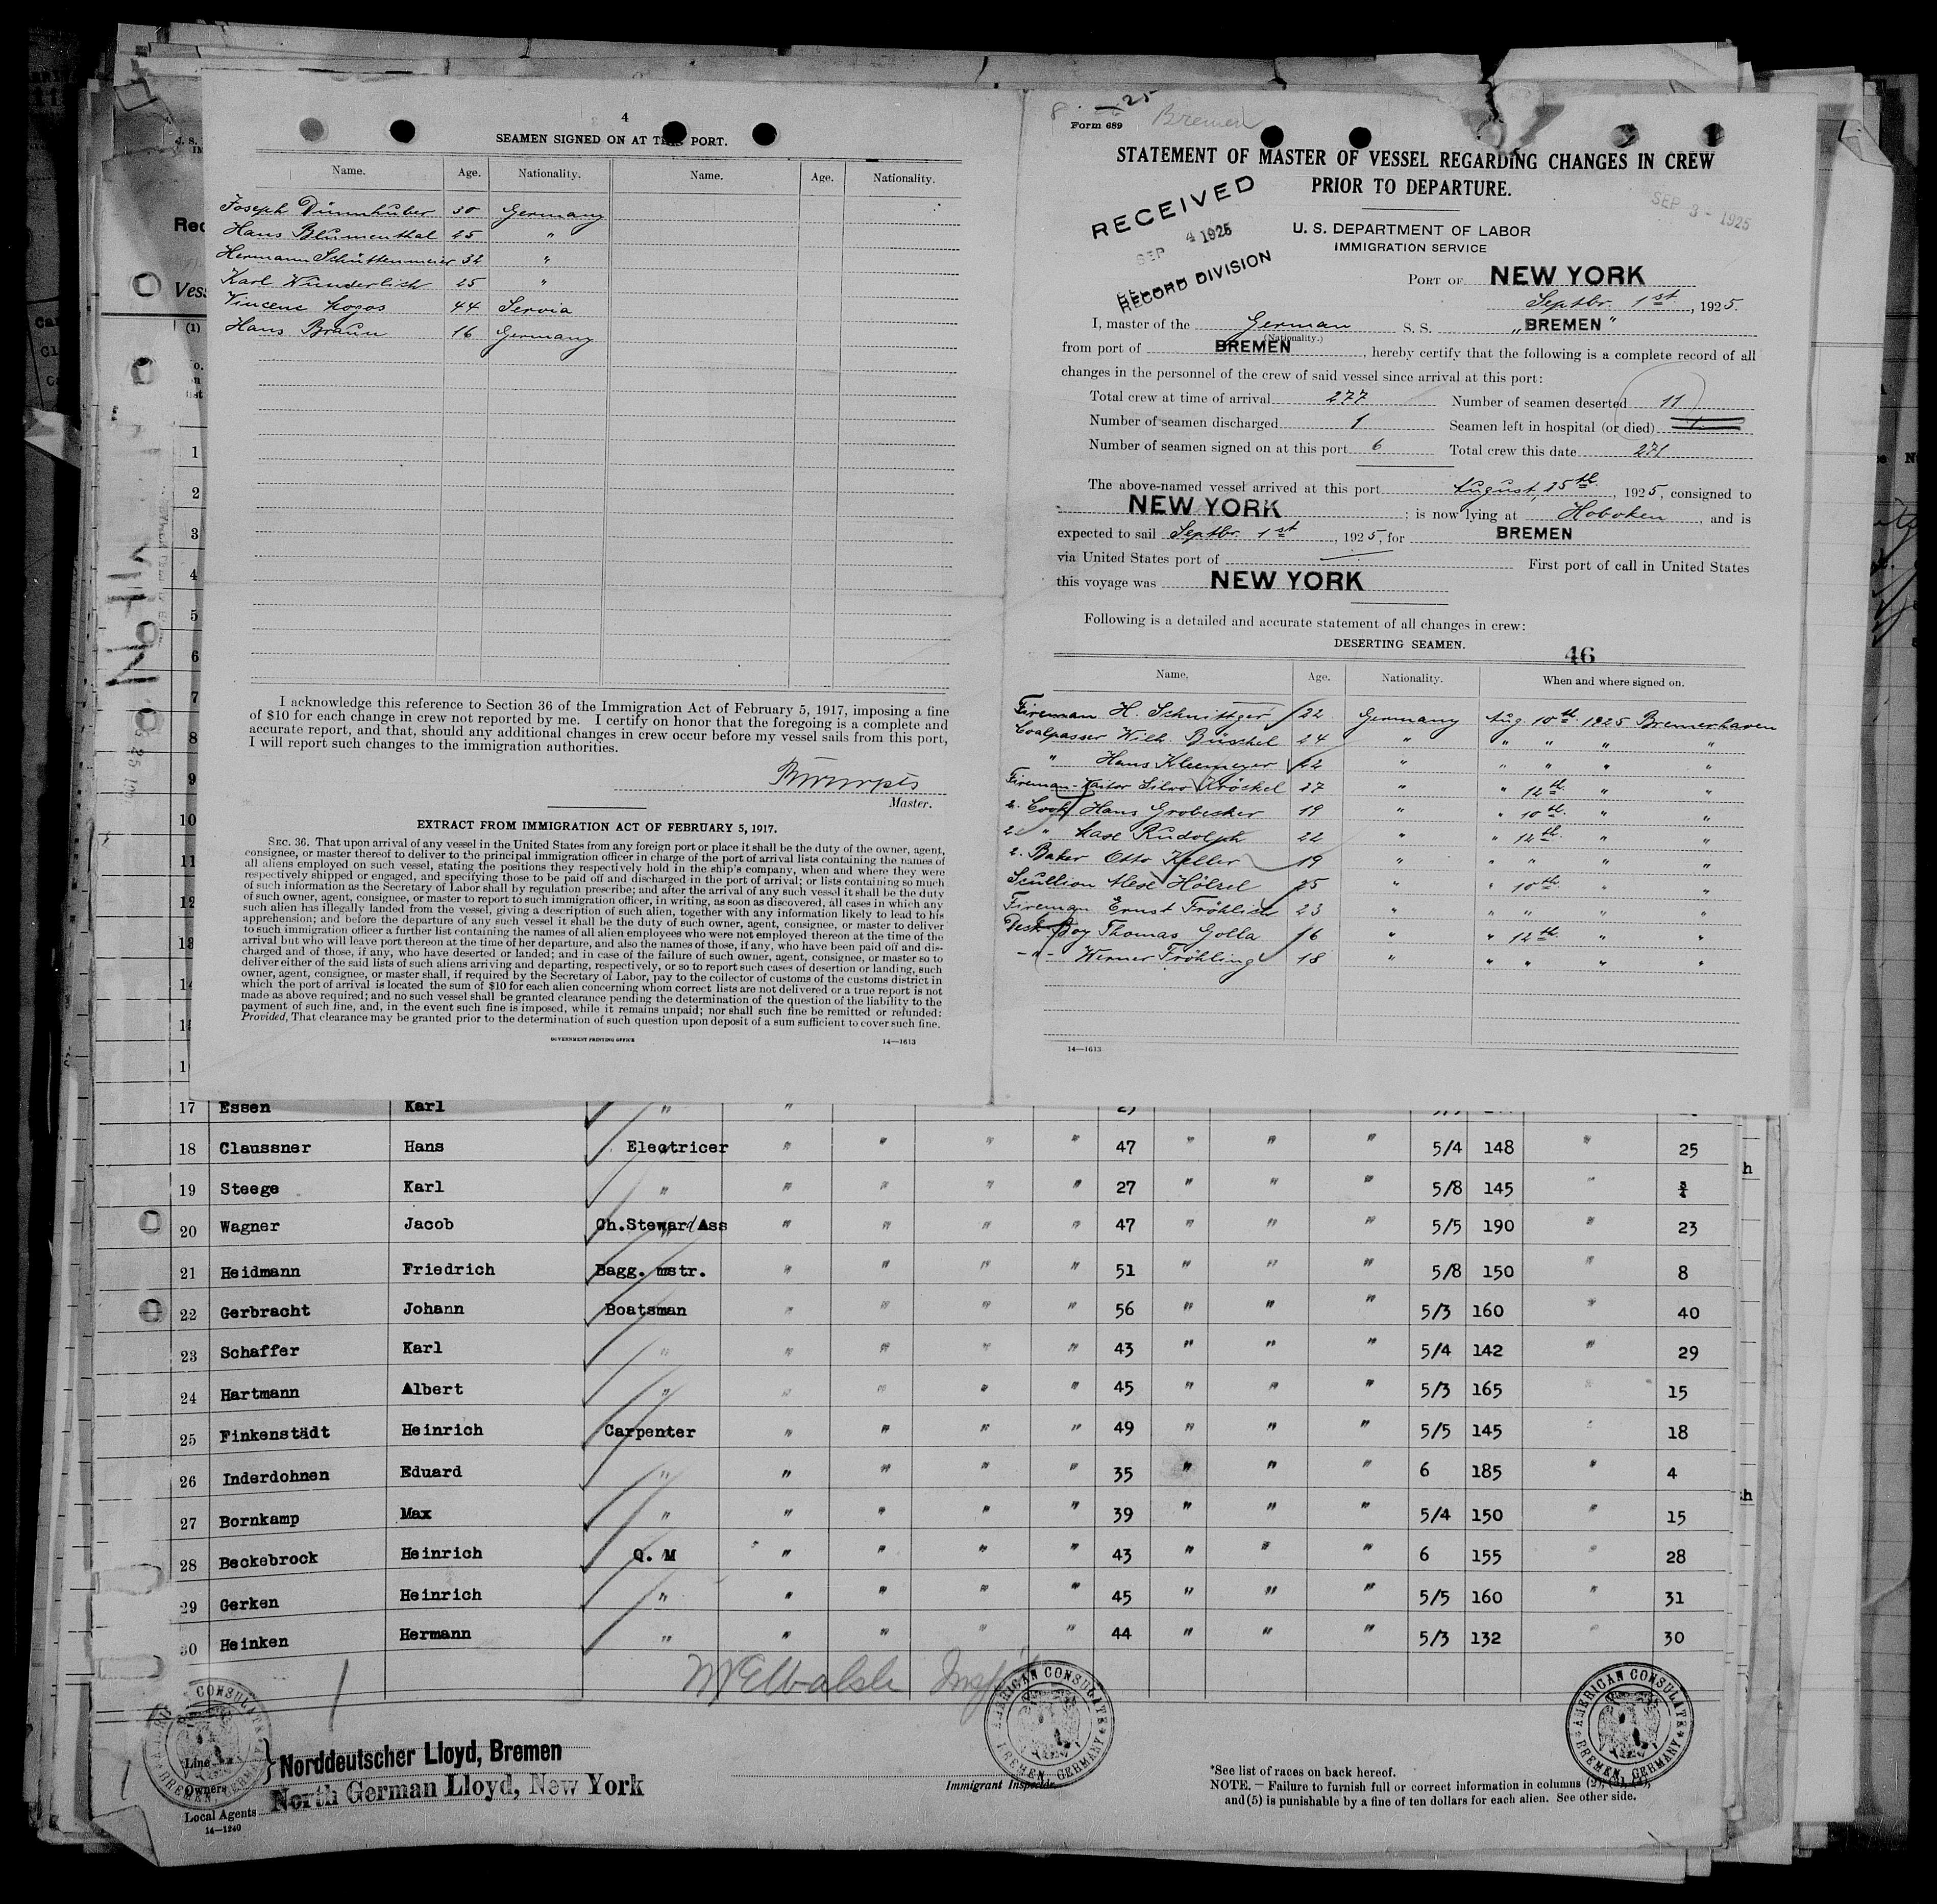 4
SEAMEN SIGNED ON AT THIS PORT.
Name. Age. Nationality. Name. Age. Nationality.
Joseph Dünnhuber 30 Germany
Hans Blumenthal 25 "
Hermann Schüttenmeier 32 "
Karl Wunderlich 25 "
Vincenc 44 Servia
Hans Braun 16 Germany
I acknowledge this reference to Section 36 of the Immigration Act of February 5, 1917, imposing a fine
of $10 for each change in crew not reported by me. I certify on honor that the foregoing is a complete and
accurate report, and that, should any additional changes in crew occur before my vessel sails from this port,
I will report such changes to the immigration authorities.
Master.
EXTRACT FROM IMMIGRATION ACT OF FEBRUARY 5, 1917.
SEC. 36. That upon arrival of any vessel in the United States from any foreign port or place it shall be the duty of the owner, agent,
consignee, or master thereof to deliver to the principal immigration officer in charge of the port of arrival lists containing the names of
all aliens employed on such vessel, stating the positions they respectively hold in the ship's company, when and where they were
respectively shipped or engaged, and specifying those to be paid off and discharged in the port of arrival; or lists containing so much
of such information as the Secretary of Labor shall by regulation prescribe; and after the arrival of any such vessel it shall be the duty
of such owner, agent, consignee, or master to report to such immigration officer, in writing, as soon as discovered, all cases in which any
such alien has illegally landed from the vessel, giving a description of such alien, together with any information likely to lead to his
apprehension; and before the departure of any such vessel it shall be the duty of such owner, agent, consignee, or master to deliver
to such immigration officer a further list containing the names of all alien employees who were not employed thereon at the time of the
arrival but who will leave port thereon at the time of her departure, and also the names of those, if any, who have been paid off and dis-
charged and of those, if any, who have deserted or landed; and in case of the failure of such owner, agent, consignee, or master so to
deliver either of the said lists of such aliens arriving and departing, respectively, or so to report such cases of desertion or landing, such
owner, agent, consignee, or master shall, if required by the Secretary of Labor, pay to the collector of customs of the customs district in
which the port of arrival is located the sum of $10 for each alien concerning whom correct lists are not delivered or a true report is not
made as above required; and no such vessel shall be granted clearance pending the determination of the question of the liability to the
payment of such fine, and, in the event such fine is imposed, while it remains unpaid; nor shall such fine be remitted or refunded:
Provided, That clearance may be granted prior to the determination of such question upon deposit of a sum sufficient to cover such fine.
GOVERNMENT PRINTING OFFICE 14—1613
Bremen
Form 689
STATEMENT OF MASTER OF VESSEL REGARDING CHANGES IN CREW
PRIOR TO DEPARTURE.
RECEIVED
SEP 4 1925
RECORD DIVISION
SEP 3 - 1925
U. S. DEPARTMENT OF LABOR
IMMIGRATION SERVICE
PORT OF NEW YORK
Septbr. 1st, 1925.
I, master of the German S. S. „BREMEN"
(Nationality.)
from port of BREMEN, hereby certify that the following is a complete record of all
changes in the personnel of the crew of said vessel since arrival at this port:
Total crew at time of arrival 277 Number of seamen deserted 11
Number of seamen discharged 1 Seamen left in hospital (or died)
Number of seamen signed on at this port 6 Total crew this date 271
The above-named vessel arrived at this port August, 25th, 1925, consigned to
NEW YORK; is now lying at Hoboken, and is
expected to sail Septbr. 1st, 1925, for BREMEN
via United States port of — First port of call in United States
this voyage was NEW YORK
Following is a detailed and accurate statement of all changes in crew:
DESERTING SEAMEN. 46
Name. Age. Nationality. When and where signed on.
Fireman H. Schnittger 22 Germany Aug. 10th 1925 Bremerhaven
Coalpasser Wilh. Büschel 24 " " " " "
" Hans Kleemeyer 22 " " " " "
Fireman Kröckel 27 " " 12th " "
2. Cook Hans Grobecker 19 " " 10th " "
2. " Rudolph 22 " " 12th " "
2. Baker Otto Keller 19 " " " " "
Scullion Hölzel 25 " " 10th " "
Fireman Ernst Fröhlich 23 " " " " "
Boy Thomas Golla 16 " " 12th " "
-"- Werner Fröhling 18 " " " " "
14—1613
17 Essen Karl " "
18 Claussner Hans Electricer " " " " 47 " " " 5/4 148 " 25
19 Steege Karl " " " " " 27 " " " 5/8 145 "
20 Wagner Jacob Ch.Steward Ass " " " " 47 " " " 5/5 190 " 23
21 Heidmann Friedrich Bagg. mstr. " " " " 51 " " " 5/8 150 " 8
22 Gerbracht Johann Boatsman " " " " 56 " " " 5/3 160 " 40
23 Schaffer Karl " " " " " 43 " " " 5/4 142 " 29
24 Hartmann Albert " " " " " 45 " " " 5/3 165 " 15
25 Finkenstädt Heinrich Carpenter " " " " 49 " " " 5/5 145 " 18
26 Inderdohnen Eduard " " " " " 35 " " " 6 185 " 4
27 Bornkamp Max " " " " " 39 " " " 5/4 150 " 15
28 Beckebrock Heinrich Q. M " " " " 43 " " " 6 155 " 28
29 Gerken Heinrich " " " " " 45 " " " 5/5 160 " 31
30 Heinken Hermann " " " " " 44 " " " 5/3 132 " 30
AMERICAN CONSULATE BREMEN, GERMANY
Line
Owners
Norddeutscher Lloyd, Bremen
Local Agents North German Lloyd, New York
14—1240
Immigrant Inspector.
AMERICAN CONSULATE BREMEN, GERMANY
AMERICAN CONSULATE BREMEN, GERMANY
*See list of races on back hereof.
NOTE.—Failure to furnish full or correct information in columns (2), (3), (4),
and (5) is punishable by a fine of ten dollars for each alien. See other side.